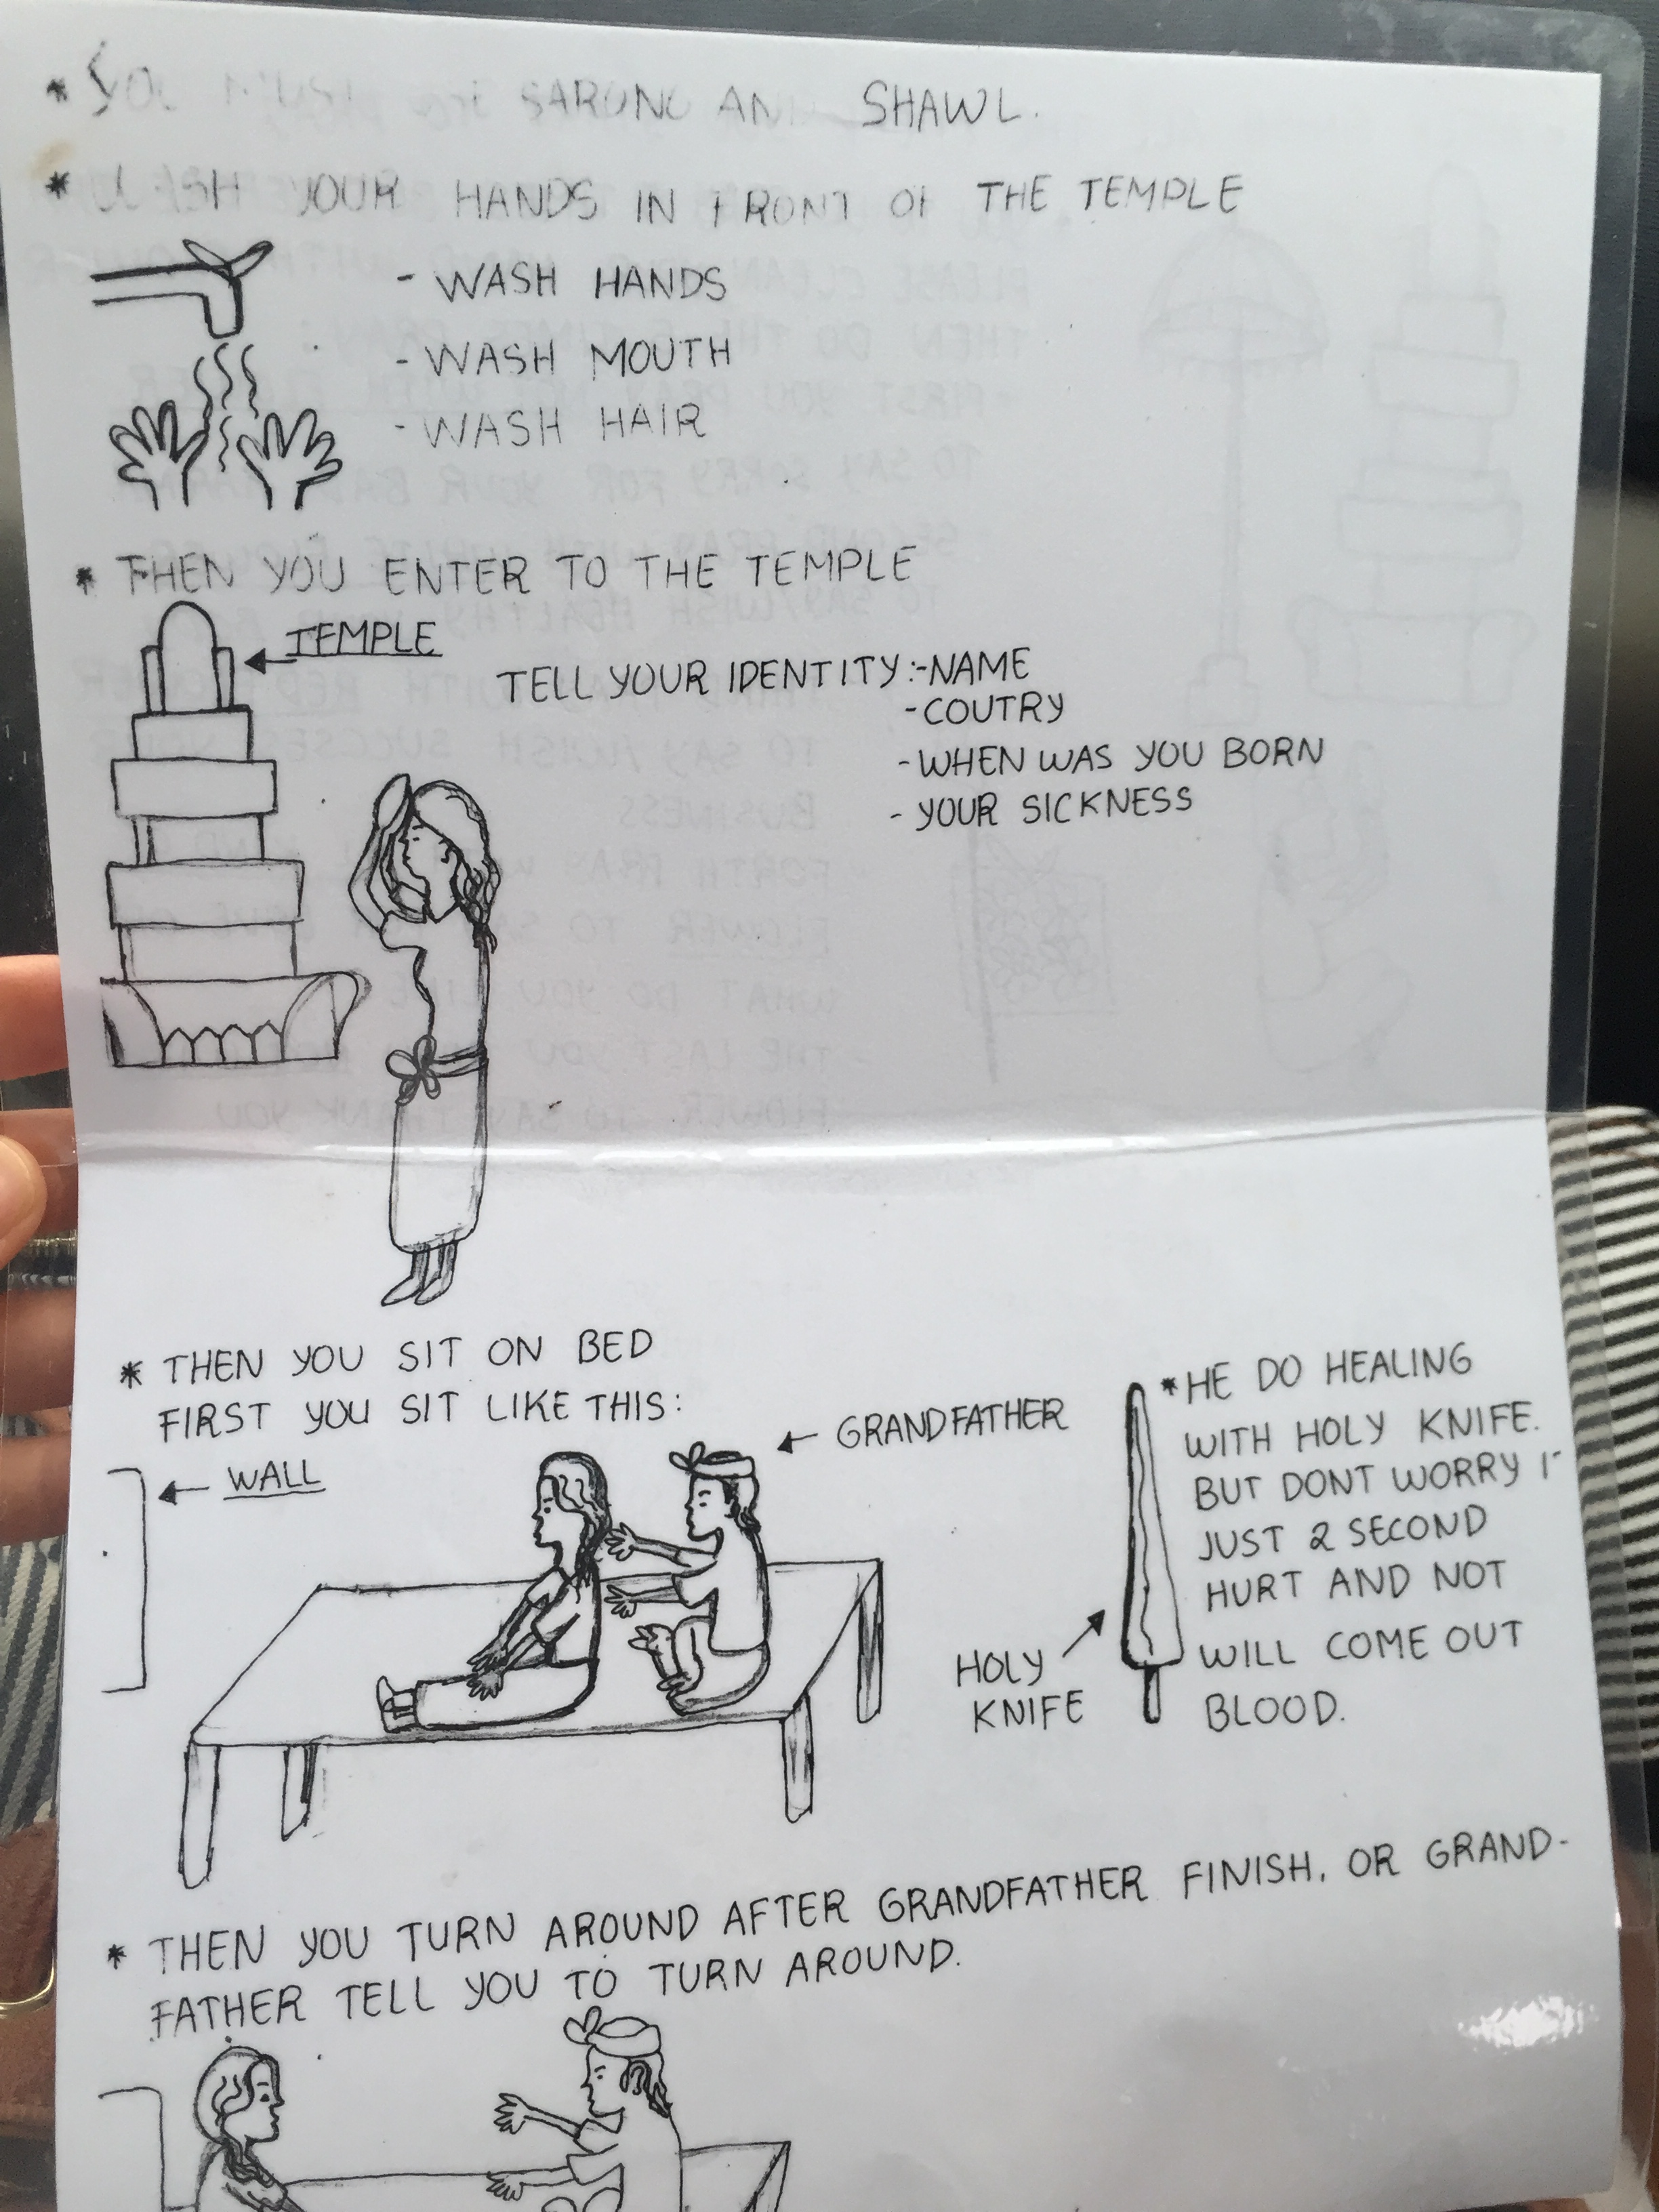 * YOU MUST SARONG AND SHAWL.
* WASH YOUR HANDS IN FRONT OF THE TEMPLE
- WASH HANDS
- WASH MOUTH
- WASH HAIR
* THEN YOU ENTER TO THE TEMPLE
TEMPLE
TELL YOUR IDENTITY :-NAME
-COUTRY
-WHEN WAS YOU BORN
- YOUR SICKNESS
* THEN YOU SIT ON BED
FIRST YOU SIT LIKE THIS:
WALL
GRANDFATHER
*HE DO HEALING
WITH HOLY KNIFE.
BUT DONT WORRY
JUST 2 SECOND
HURT AND NOT
WILL COME OUT
BLOOD.
HOLY
KNIFE
* THEN YOU TURN AROUND AFTER GRANDFATHER FINISH, OR GRAND-
FATHER TELL YOU TO TURN AROUND.